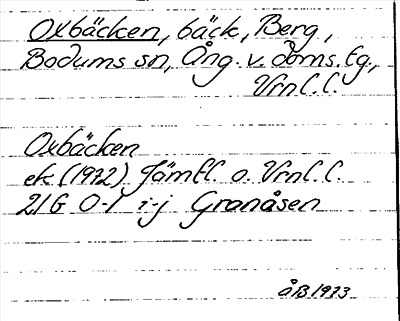 Oxbäcken, bäck, Berg,
Bodums sn, Ång. v. doms. tg.,
Vrnl. l.
Oxbäcken
ek (1972) Jämtl. o. Vrnl. l.
21G 0-1 i-j Granåsen
ÅB 1973